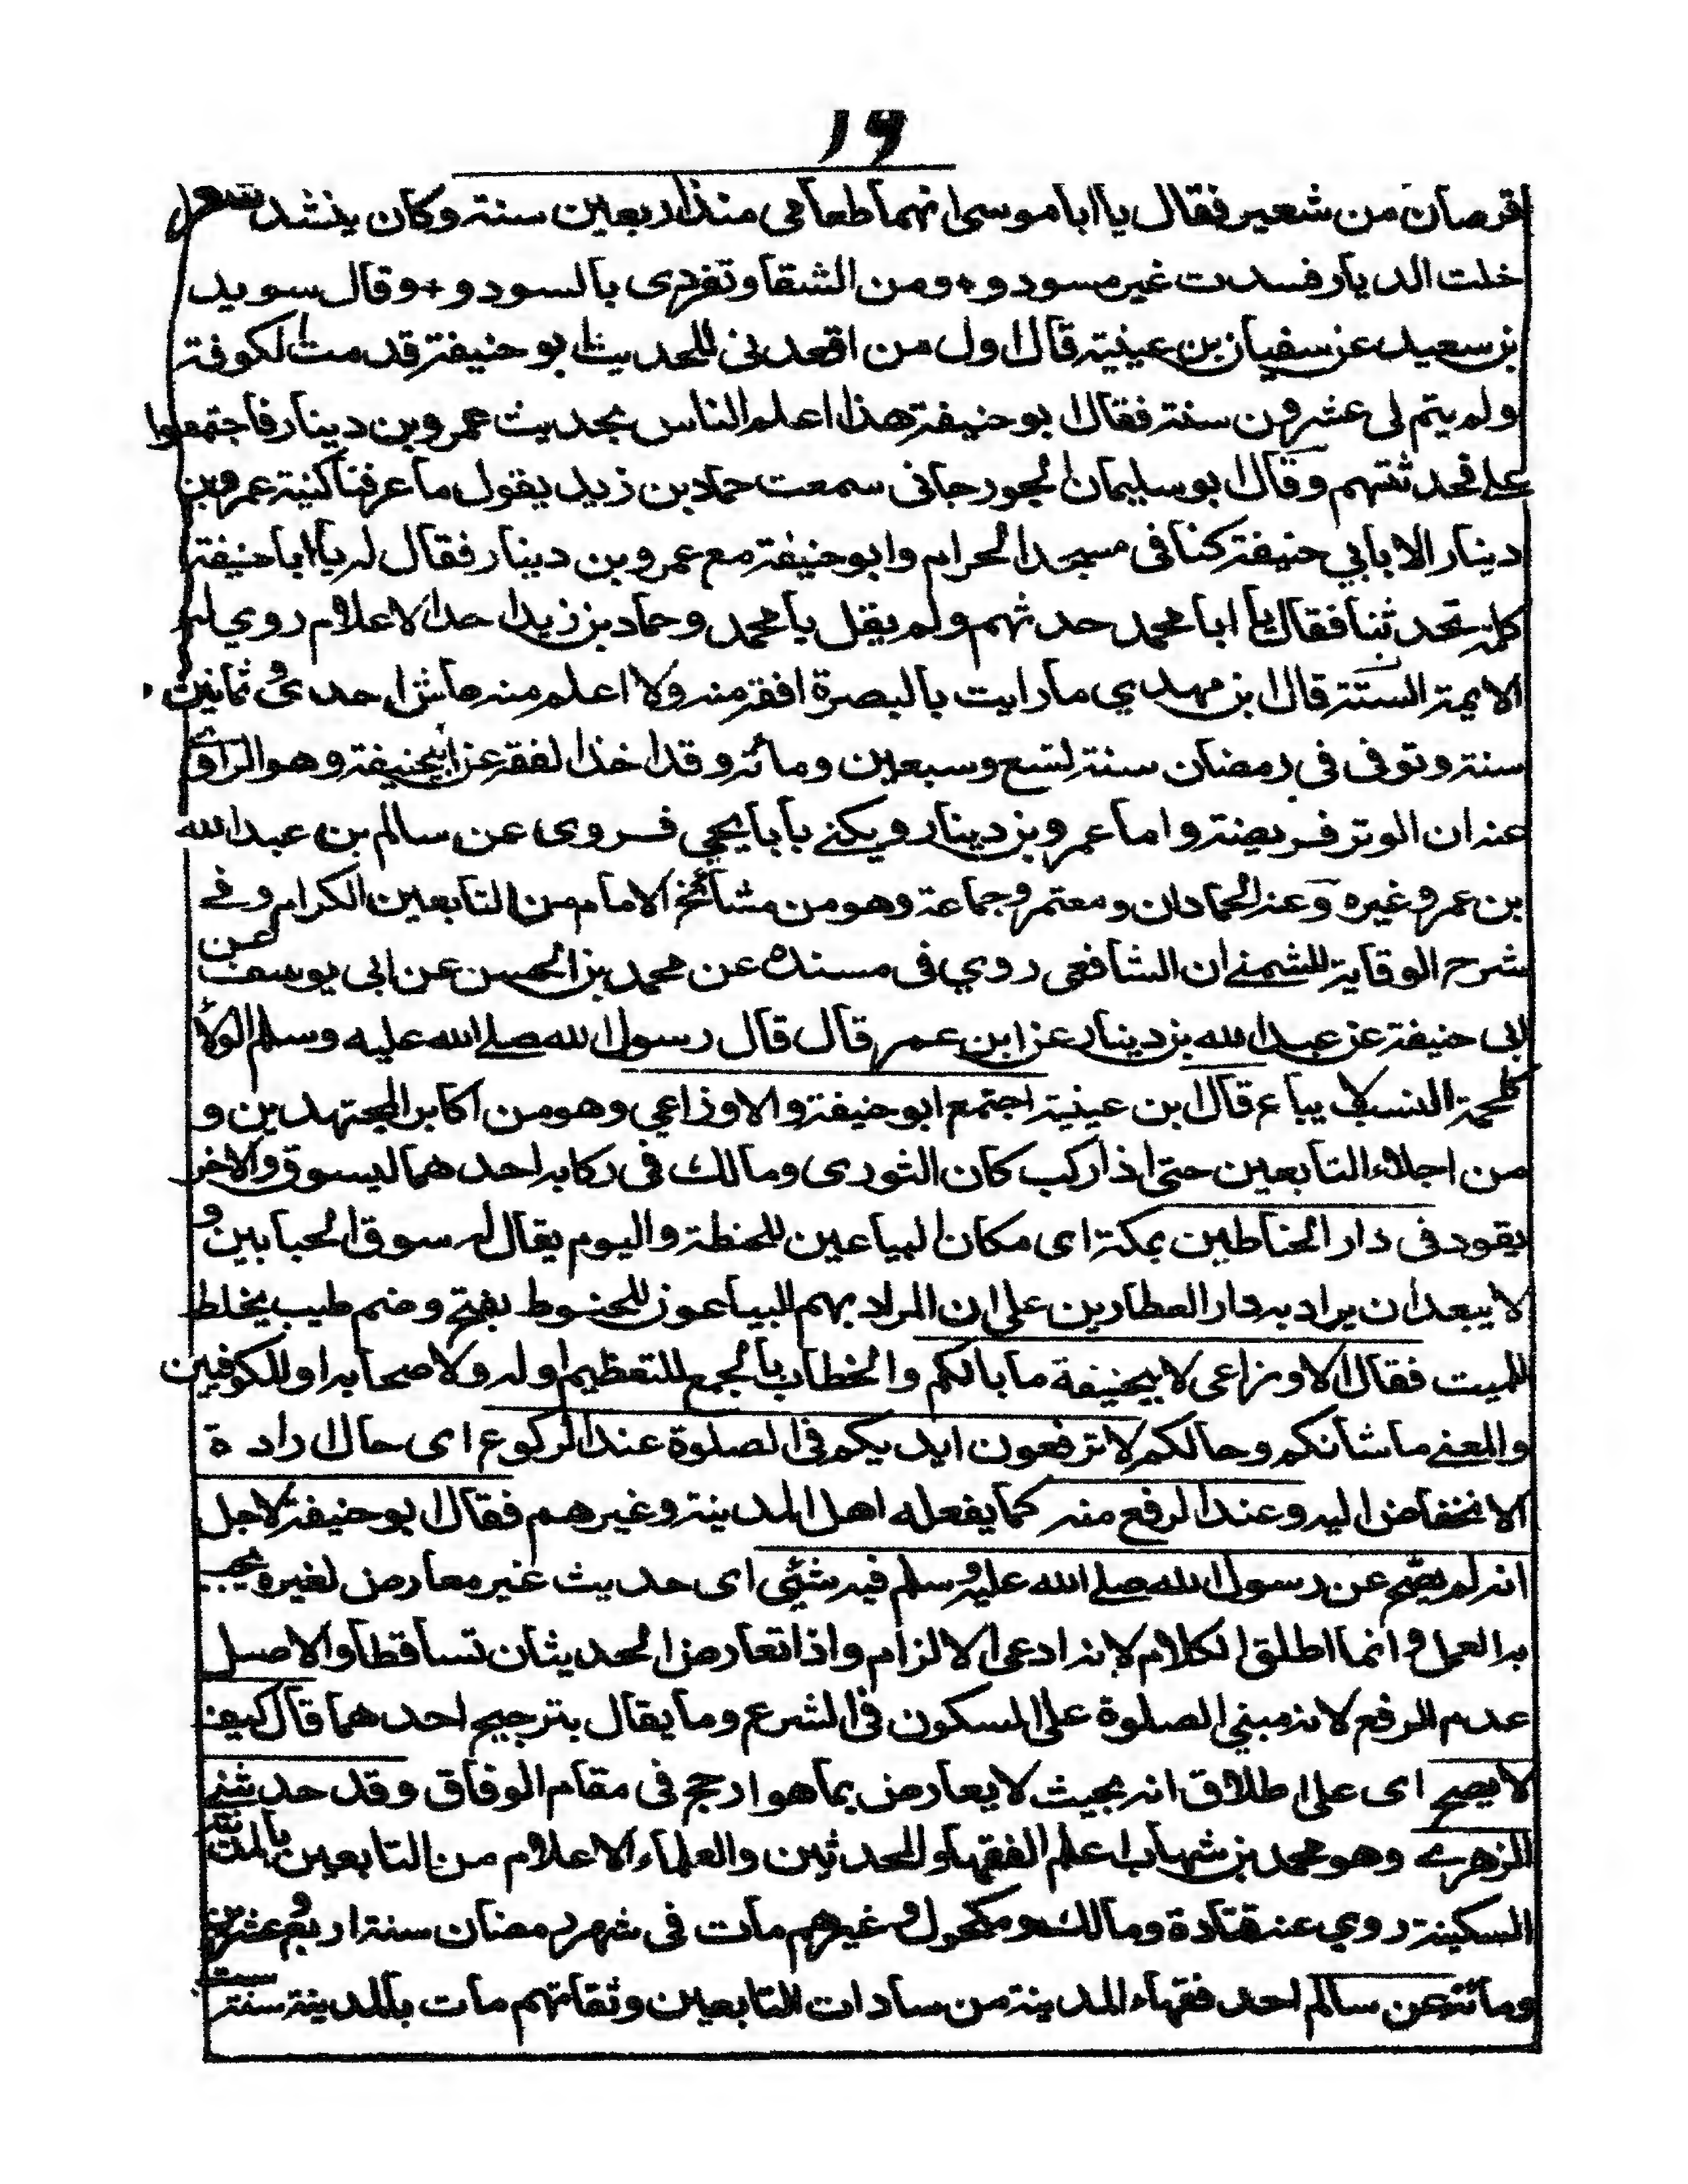 ۱۶
اقرصان من شعير فقال يا ابا موسى انهما طعامى منذ اربعين سنة وكان ينشد شعر
خلت الديار فسدت غير مسود و٠ ومن الشقا وتفردى بالسود و+ وقال سويد
بن سعيد عن سفيان بن عينية قال اول من اقعدنى للحديث ابو حنيفة قدمت الكوفة
ولم يتم لى عشرون سنة فقال ابو حنيفة هذا اعلم الناس بحديث عمرو بن دينار فاجتمعوا
على فحدثتهم وقال ابو سليمان الجورجانى سمعت حماد بن زيد يقول ما عرفنا كنية عمرو بن
دينار الا بابي حنيفة كنا فى مسجد الحرام وابو حنيفة مع عمرو بن دينار فقال له يا ابا حنيفة
كلمه تحدثنا فقال يا ابا محمد حدثهم ولم يقل يا محمد وحماد بن زيد احد الاعلام روي له
الايمة الستة قال ابن مهدي ما رايت بالبصرة افقه منه ولا اعلم منه عاش احدى وثمانين
سنة وتوفى فى رمضان سنة لتسع وسبعين ومائه وقد اخذ الفقه عن ابيحنيفة وهو الراوى
عنه ان الوتر فريضة واما عمرو بن دينار ويكنى بابا يحيى فروى عن سالم بن عبد الله
بن عمر وغيره وعنه الحمادان ومعتمر وجماعة وهو من مشائخ الامام من التابعين الكرام وفى
شرح الوقاية للشمنى ان الشافعى روي فى مسنده عن محمد بن الحسن عن ابى يوسف عن
ابى حنيفة عن عبد الله بن دينار عن ابن عمر قال قال رسول الله صلى الله عليه وسلم الولاء
كلحمة النسب لا يباع قال ابن عينية اجتمع ابو حنيفة والاوزاعي وهو من اكابر المجتهدين و
من اجلاء التابعين حتى اذا ركب كان الثورى ومالك فى ركابه احدهما ليسوق والاخر
يقود فى دار الحناطين بمكة اى مكان البياعين للحنطة واليوم يقال له سوق الحبابين و
لا يبعد ان يراد به دار العطارين على ان المراد بهم البياعون للحنوط بفتح وضم طيب يخلط
للميت فقال الاوزاعى لابيحنيفة ما بالكم والخطاب بالجمع للتعظيم اوله ولاصحابه او للكوفين
والمعنى ما شانكم وحالكم لا ترفعون ايديكم فى الصلوة عند الركوع اى حال ارادة
الانخفاض اليه وعند الرفع منه كما يفعله اهل المدينة وغيرهم فقال ابو حنيفة لاجل
انه لم يصح عن رسول الله صلى الله عليه وسلم فيه شئي اى حديث غير معارض لغيره يجب
به العمل وانما اطلق الكلام لانه ادعى الالزام واذا تعارض الحديثان تساقطا والاصل
عدم الرفع لانه مبني الصلوة على السكون فى الشرع وما يقال بترجيح احدهما قال كيف
لا يصح اى على اطلاق انه بحيث لا يعارض بما هو ارجح فى مقام الوفاق وقد حدثنى
الزهرى وهو محمد بن شهاب اعلم الفقهاء والمحدثين والعلماء الاعلام من التابعين بالمدينة
السكينة روي عنه قتادة ومالك ومكحول وغيرهم مات فى شهر رمضان سنة اربع وعشرين
ومائة عن سالم احد فقهاء المدينة من سادات التابعين وثقاتهم مات بالمدينة سنة ست